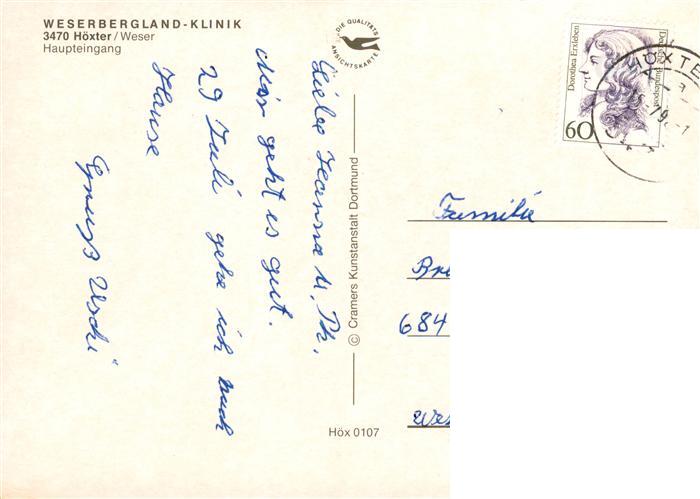 WESERBERGLAND-KLINIK
3470 Höxter/Weser
Haupteingang
DIE QUALITÄTS
ANSICHTSKARTE
Liebe Hanna u. Ph.
Mir geht es gut.
29 Juli gehe ich nach
Hause
Gruß Uschi
© Cramers Kunstanstalt Dortmund
Höx 0107
Dorothea Erxleben
Deutsche Bundespost
60
HÖXTE
Familie
Bre
684
We